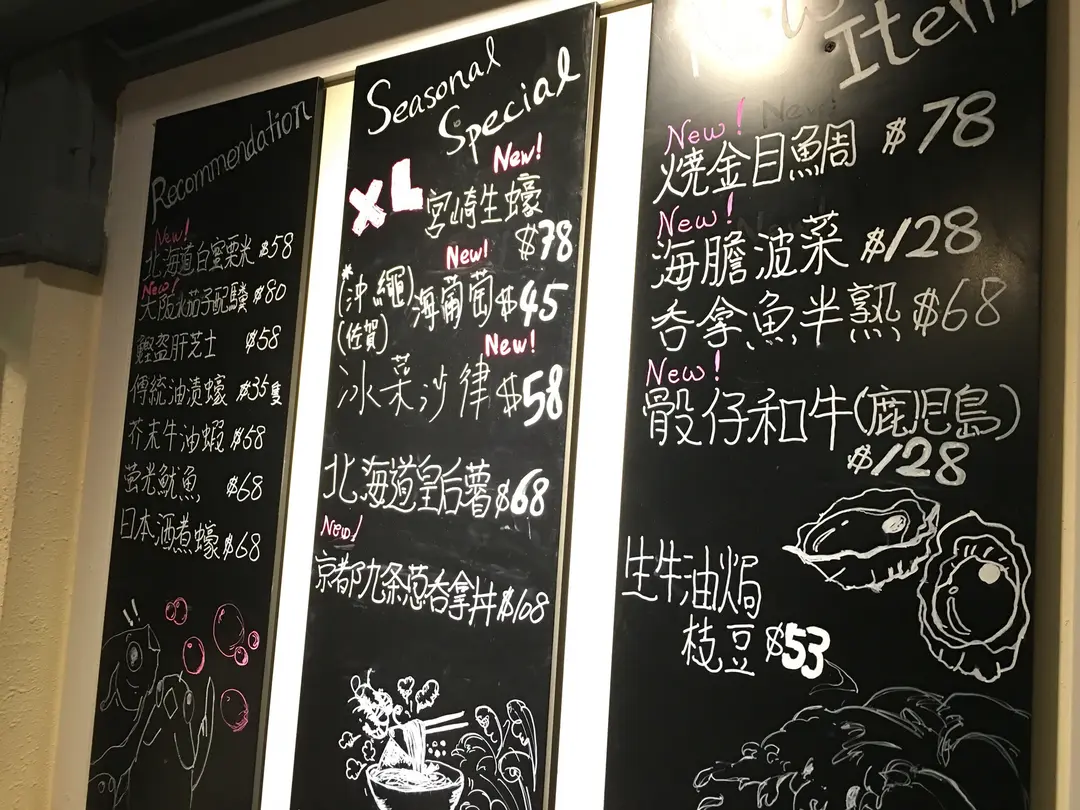 Recommendation
New!
北海道白蜜粟米 $58
New!
大阪水茄子配 $80
肝芝士 $58
傳統油漬蠔 $35隻
芥末牛油蝦 $58
螢光魷魚 $68
日本酒煮蠔 $68
Seasonal
Special
New!
XL 宮崎生蠔
$78
New!
*(沖繩)海葡萄 $45
(佐賀) New!
冰菜沙律 $58
北海道皇后薯 $68
New!
京都九条葱吞拿丼 $108
New
Item
New! New!
燒金目鯛 $78
New!
海膽波菜 $128
吞拿魚半熟 $68
New!
骰仔和牛(鹿児島)
$128
生牛油焗
枝豆 $53